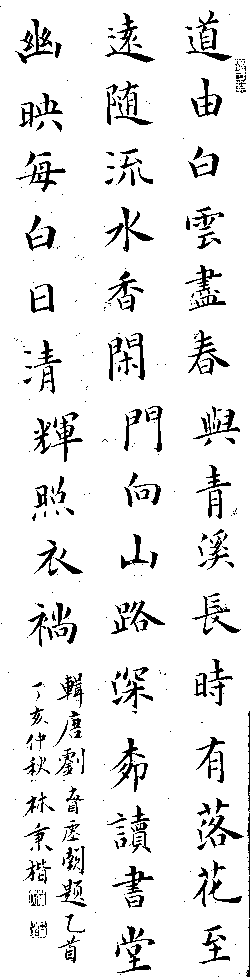 道由白雲盡春與青溪長時有落花至
遠随流水香閑門向山路深柳讀書堂
幽映每白日清輝照衣裳
輯唐劉昚虛闕題乙首
丁亥仲秋林秉楷